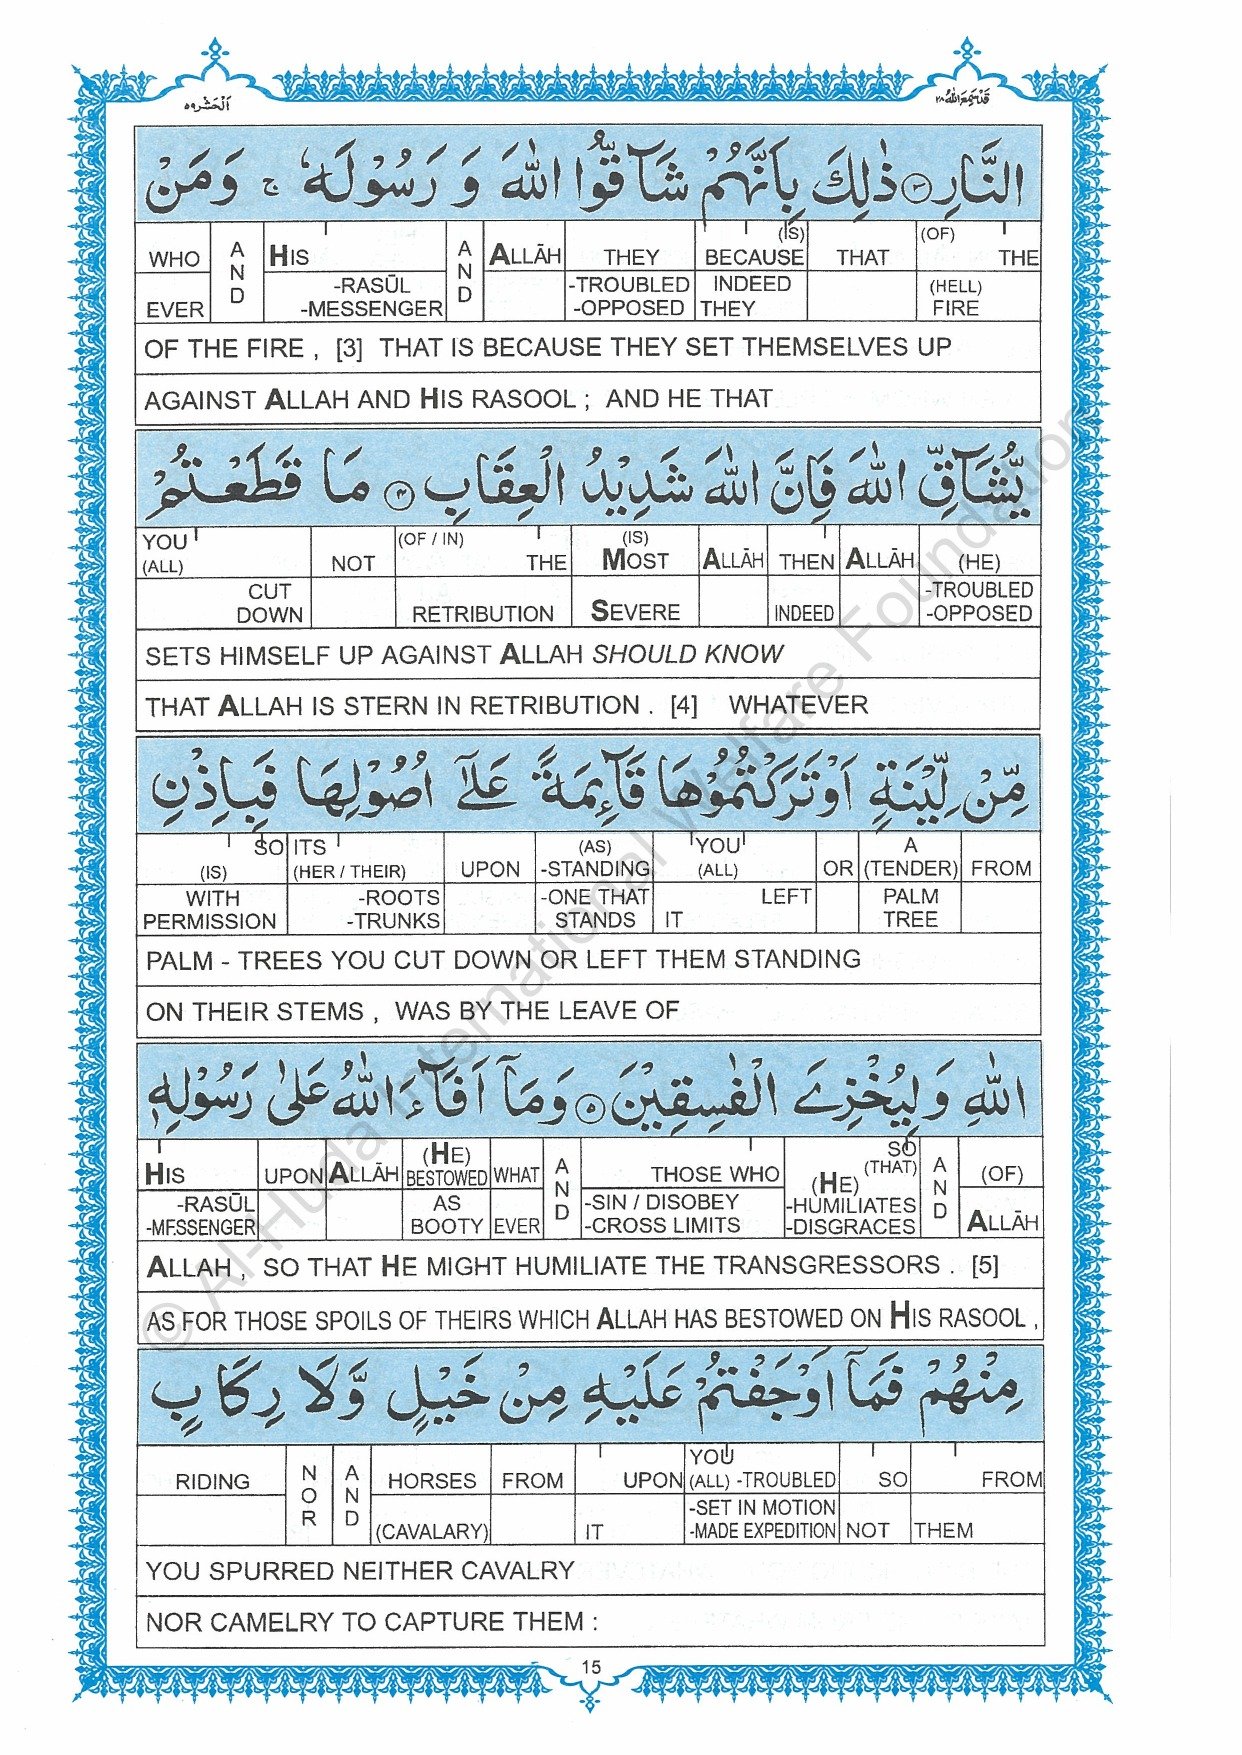 اَلْحَشْر ٥٩
قَدْ سَمِعَ اللّٰهُ ٢٨
النَّارِ ③ ذٰلِكَ بِاَنَّهُمْ شَآقُّوا اللّٰهَ وَ رَسُوْلَهٗ ج وَمَنْ
WHO AND HIS AND ALLĀH THEY BECAUSE (IS) THAT (OF) THE
EVER -RASŪL -TROUBLED INDEED (HELL)
-MESSENGER -OPPOSED THEY FIRE
OF THE FIRE , [3] THAT IS BECAUSE THEY SET THEMSELVES UP
AGAINST ALLAH AND HIS RASOOL ; AND HE THAT
يُّشَآقِّ اللّٰهَ فَاِنَّ اللّٰهَ شَدِيْدُ الْعِقَابِ ④ مَا قَطَعْتُمْ
YOU (ALL) NOT (OF / IN) THE (IS) MOST ALLĀH THEN ALLĀH (HE)
CUT -TROUBLED
DOWN RETRIBUTION SEVERE INDEED -OPPOSED
SETS HIMSELF UP AGAINST ALLAH SHOULD KNOW
THAT ALLAH IS STERN IN RETRIBUTION . [4] WHATEVER
مِّنْ لِّيْنَةٍ اَوْ تَرَكْتُمُوْهَا قَآئِمَةً عَلٰٓى اُصُوْلِهَا فَبِاِذْنِ
SO ITS (AS) YOU A
(IS) (HER / THEIR) UPON -STANDING (ALL) OR (TENDER) FROM
WITH -ROOTS -ONE THAT LEFT PALM
PERMISSION -TRUNKS STANDS IT TREE
PALM - TREES YOU CUT DOWN OR LEFT THEM STANDING
ON THEIR STEMS , WAS BY THE LEAVE OF
اللّٰهِ وَ لِيُخْزِيَ الْفٰسِقِيْنَ ⑤ وَمَآ اَفَآءَ اللّٰهُ عَلٰى رَسُوْلِهٖ
HIS UPON ALLĀH (HE) BESTOWED WHAT AND THOSE WHO SO (THAT) (HE) AND (OF)
-RASŪL AS -SIN / DISOBEY -HUMILIATES
-MESSENGER BOOTY EVER -CROSS LIMITS -DISGRACES ALLĀH
ALLAH , SO THAT HE MIGHT HUMILIATE THE TRANSGRESSORS . [5]
AS FOR THOSE SPOILS OF THEIRS WHICH ALLAH HAS BESTOWED ON HIS RASOOL ,
مِنْهُمْ فَمَآ اَوْجَفْتُمْ عَلَيْهِ مِنْ خَيْلٍ وَّ لَا رِكَابٍ
RIDING NOR AND HORSES FROM UPON YOU (ALL) -TROUBLED SO FROM
-SET IN MOTION
(CAVALARY) IT -MADE EXPEDITION NOT THEM
YOU SPURRED NEITHER CAVALRY
NOR CAMELRY TO CAPTURE THEM :
15
© Al-Huda International Welfare Foundation